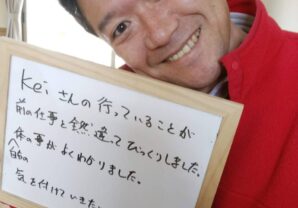 Keiさんの行っていることが
前の仕事と全然違ってびっくりしました。
体の事がよくわかりました。
気を付けていきたい